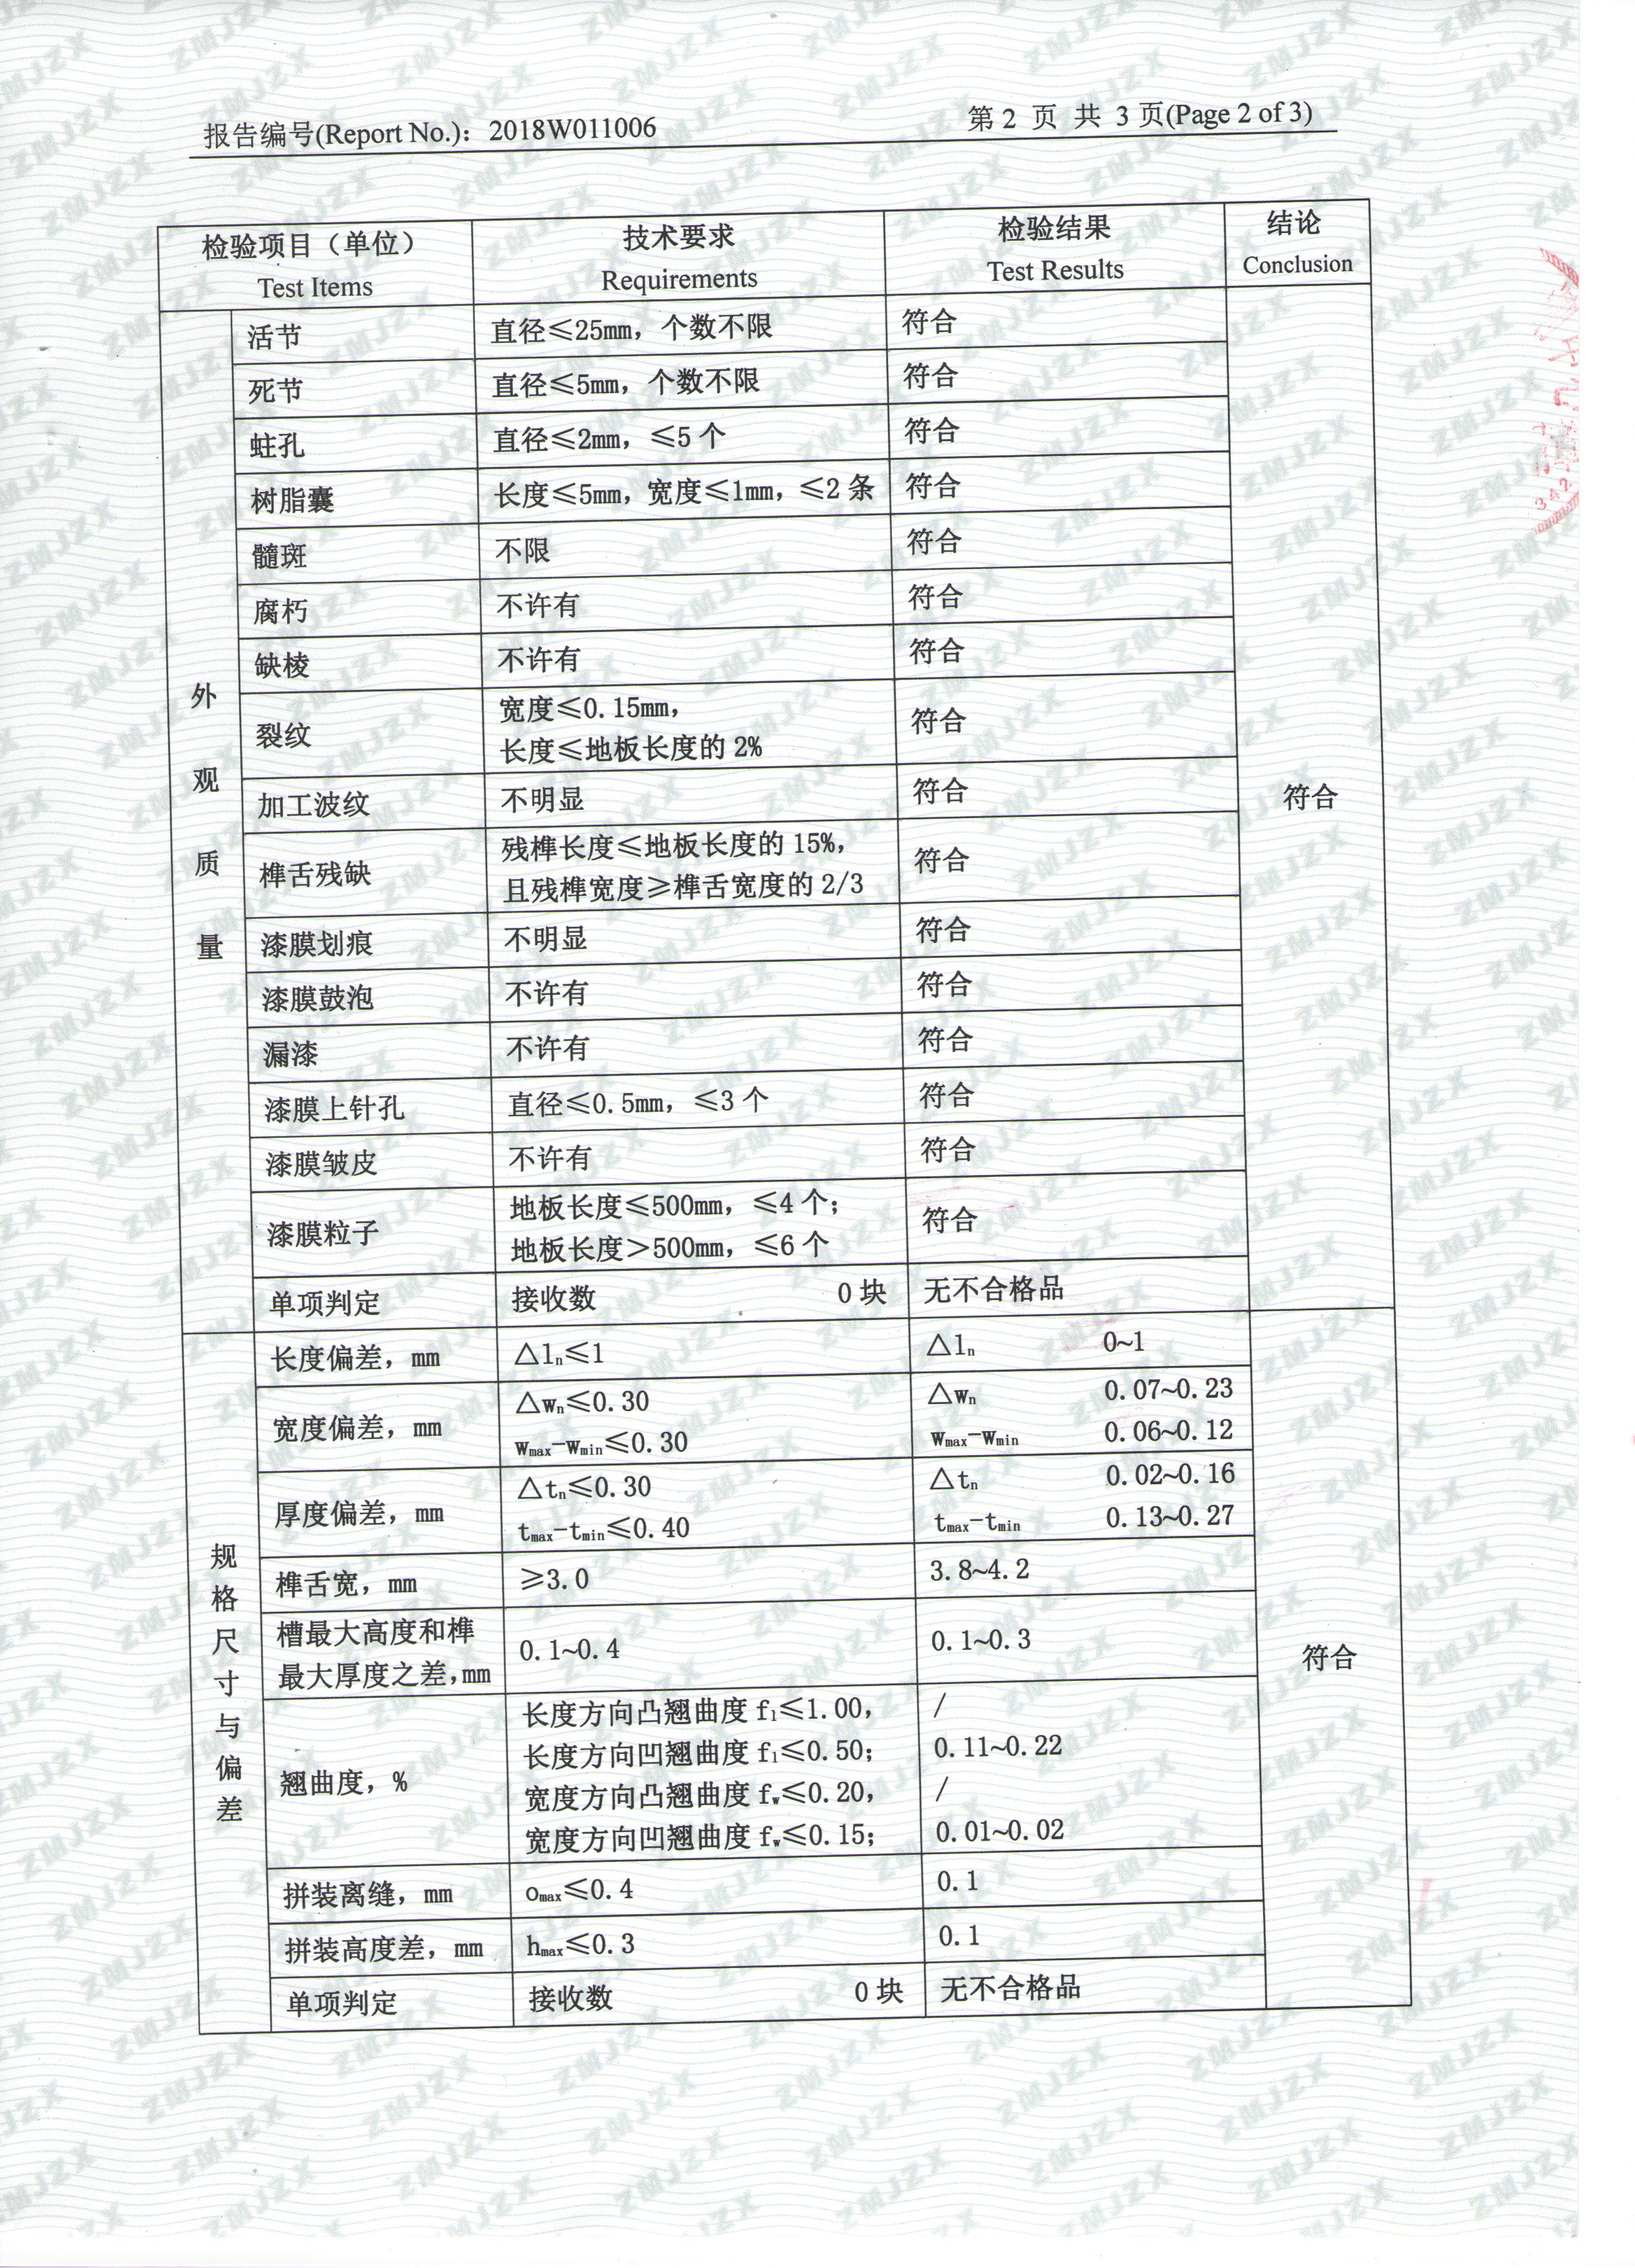 报告编号(Report No.)：2018W011006
第 2 页 共 3 页(Page 2 of 3)
检验项目（单位） 技术要求 检验结果 结论
Test Items Requirements Test Results Conclusion
外观质量
活节 直径≤25mm，个数不限 符合
死节 直径≤5mm，个数不限 符合
蛀孔 直径≤2mm，≤5 个 符合
树脂囊 长度≤5mm，宽度≤1mm，≤2 条 符合
髓斑 不限 符合
腐朽 不许有 符合
缺棱 不许有 符合
裂纹 宽度≤0.15mm，
长度≤地板长度的 2% 符合
加工波纹 不明显 符合
符合
榫舌残缺 残榫长度≤地板长度的 15%，
且残榫宽度≥榫舌宽度的 2/3 符合
漆膜划痕 不明显 符合
漆膜鼓泡 不许有 符合
漏漆 不许有 符合
漆膜上针孔 直径≤0.5mm，≤3 个 符合
漆膜皱皮 不许有 符合
漆膜粒子 地板长度≤500mm，≤4 个；
地板长度＞500mm，≤6 个 符合
单项判定 接收数 0 块 无不合格品
规格尺寸与偏差
长度偏差，mm △lₙ≤1 △lₙ 0~1
宽度偏差，mm △wₙ≤0.30 △wₙ 0.07~0.23
wmax-wmin≤0.30 wmax-wmin 0.06~0.12
厚度偏差，mm △tₙ≤0.30 △tₙ 0.02~0.16
tmax-tmin≤0.40 tmax-tmin 0.13~0.27
榫舌宽，mm ≥3.0 3.8~4.2
槽最大高度和榫
最大厚度之差,mm 0.1~0.4 0.1~0.3
符合
翘曲度，% 长度方向凸翘曲度 fl≤1.00， /
长度方向凹翘曲度 fl≤0.50； 0.11~0.22
宽度方向凸翘曲度 fw≤0.20， /
宽度方向凹翘曲度 fw≤0.15； 0.01~0.02
拼装离缝，mm omax≤0.4 0.1
拼装高度差，mm hmax≤0.3 0.1
单项判定 接收数 0 块 无不合格品
ZMJZX
342